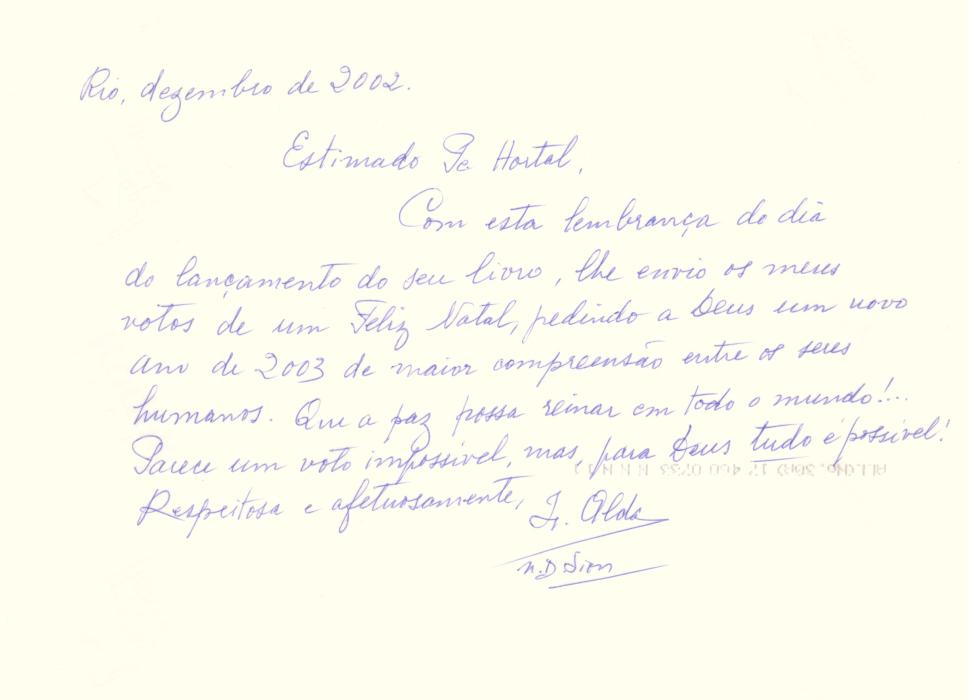 Rio, dezembro de 2002.
Estimado Pe Hortal,
Com esta lembrança do dia
do lançamento do seu livro, lhe envio os meus
votos de um Feliz Natal, pedindo a Deus um novo
ano de 2003 de maior compreensão entre os seres
humanos. Que a paz possa reinar em todo o mundo!...
Parece um voto impossível, mas, para Deus tudo é possível!
Respeitosa e afetuosamente,
Ir. Alda
N.D Sion